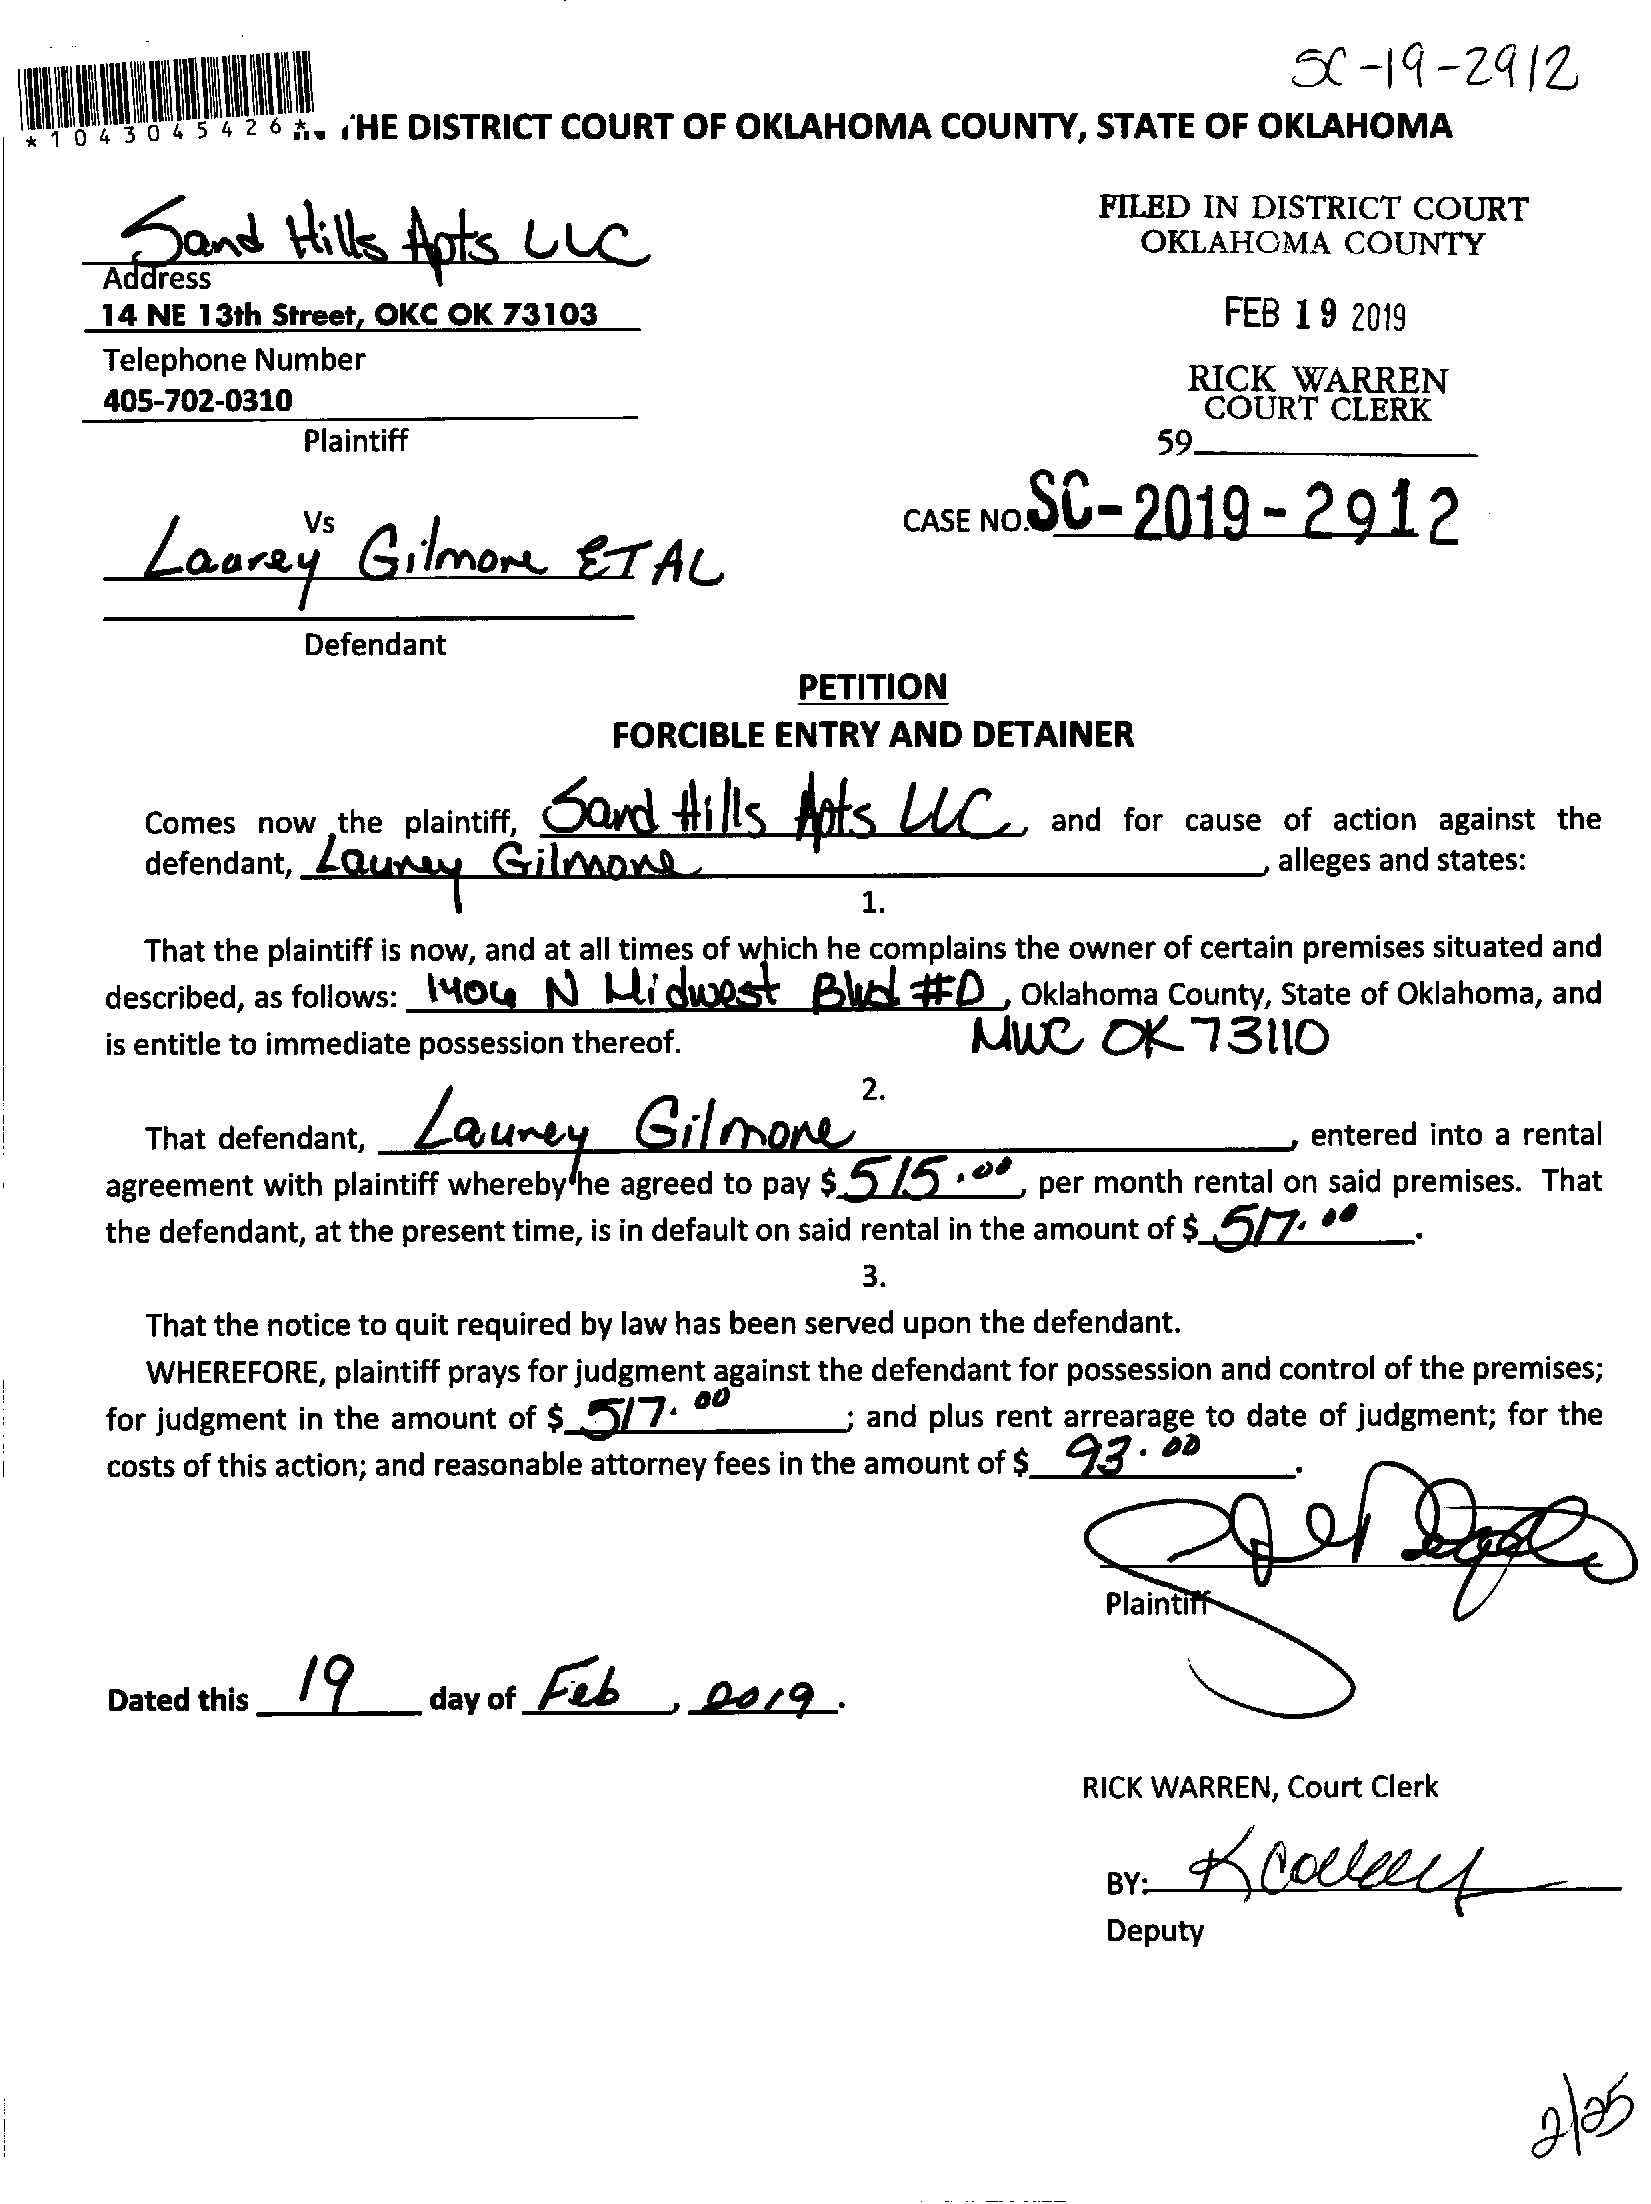 SC-19-2912
*1043045426* THE DISTRICT COURT OF OKLAHOMA COUNTY, STATE OF OKLAHOMA
Sand Hills Apts LLC
Address
14 NE 13th Street, OKC OK 73103
Telephone Number
405-702-0310
Plaintiff
FILED IN DISTRICT COURT
OKLAHOMA COUNTY
FEB 19 2019
RICK WARREN
COURT CLERK
59
CASE NO. SC-2019-2912
Vs
Laurey Gilmore ET AL
Defendant
PETITION
FORCIBLE ENTRY AND DETAINER
Comes now the plaintiff, Sand Hills Apts LLC, and for cause of action against the
defendant, Laurey Gilmore, alleges and states:
1.
That the plaintiff is now, and at all times of which he complains the owner of certain premises situated and
described, as follows: 1406 N Midwest Blvd #D, Oklahoma County, State of Oklahoma, and
is entitle to immediate possession thereof. MWC OK 73110
2.
That defendant, Laurey Gilmore, entered into a rental
agreement with plaintiff whereby he agreed to pay $ 515.00, per month rental on said premises. That
the defendant, at the present time, is in default on said rental in the amount of $ 517.00.
3.
That the notice to quit required by law has been served upon the defendant.
WHEREFORE, plaintiff prays for judgment against the defendant for possession and control of the premises;
for judgment in the amount of $ 517.00; and plus rent arrearage to date of judgment; for the
costs of this action; and reasonable attorney fees in the amount of $ 93.00.
Plaintiff
Dated this 19 day of Feb, 2019.
RICK WARREN, Court Clerk
BY:
Deputy
2/25